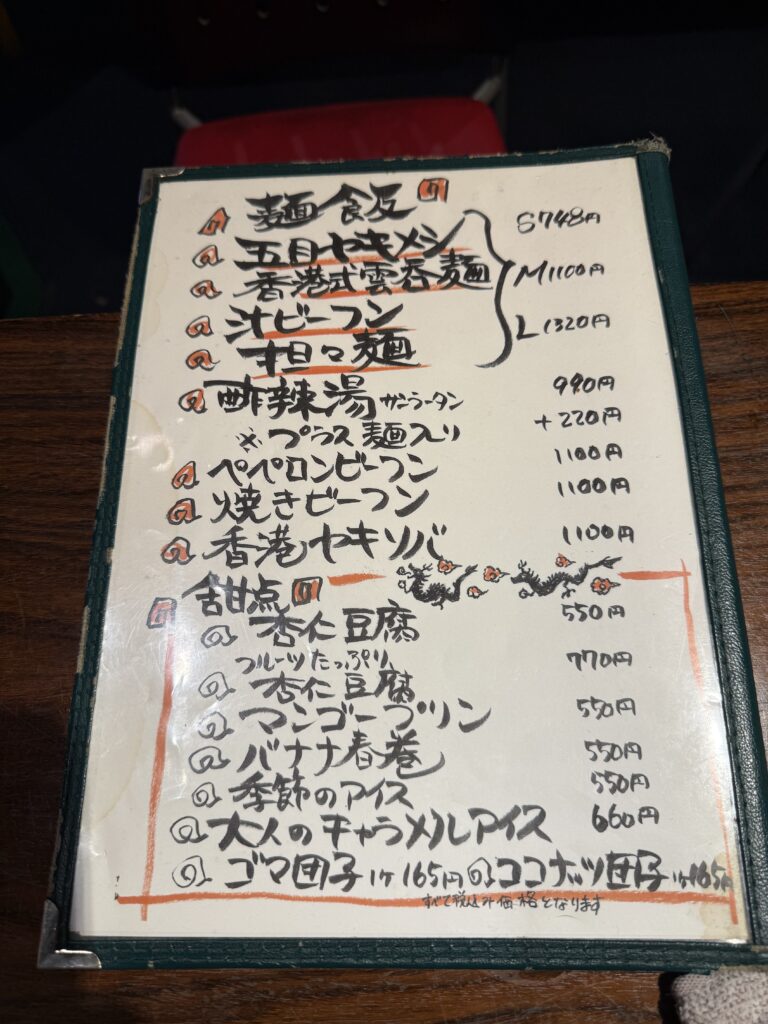 麺食反
五目ヤキメシ S748円
香港式雲呑麺 M1100円
汁ビーフン L1320円
担々麺
酢辣湯 サンラータン 990円
※プラス麺入り +220円
ペペロンビーフン 1100円
焼きビーフン 1100円
香港ヤキソバ 1100円
甜点
杏仁豆腐 550円
フルーツたっぷり
杏仁豆腐 770円
マンゴープリン 550円
バナナ春巻 550円
季節のアイス 550円
大人のキャラメルアイス 660円
ゴマ団子 1ケ165円 ココナッツ団子 1ケ165円
すべて税込み価格となります